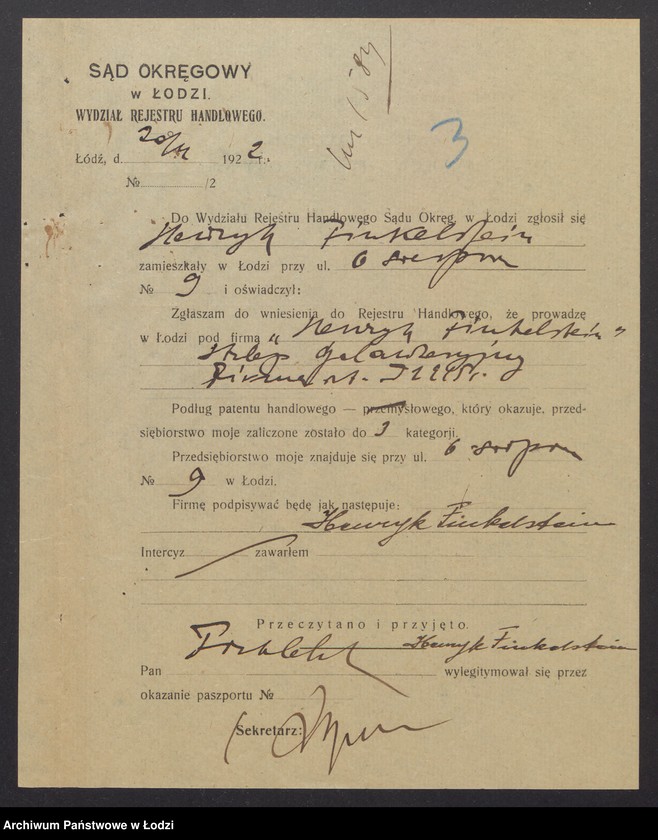 SĄD OKRĘGOWY
w ŁODZI.
WYDZIAŁ REJESTRU HANDLOWEGO.
3
Łódź, d. 20/XI 1922 r.
№ /2
Do Wydziału Rejestru Handlowego Sądu Okręg. w Łodzi zgłosił się
Henryk Finkelstein
zamieszkały w Łodzi przy ul. 6 sierpnia
№ 9 i oświadczył:
Zgłaszam do wniesienia do Rejestru Handlowego, że prowadzę
w Łodzi pod firmą „Henryk Finkelstein"
sklep galanteryjny
Firma
Podług patentu handlowego — przemysłowego, który okazuje, przed-
siębiorstwo moje zaliczone zostało do 3 kategorji.
Przedsiębiorstwo moje znajduje się przy ul. 6 sierpnia
№ 9 w Łodzi.
Firmę podpisywać będę jak następuje:
Henryk Finkelstein
Intercyz zawarłem
Przeczytano i przyjęto.
Henryk Finkelstein
Pan wylegitymował się przez
okazanie paszportu №
Sekretarz:
Archiwum Państwowe w Łodzi